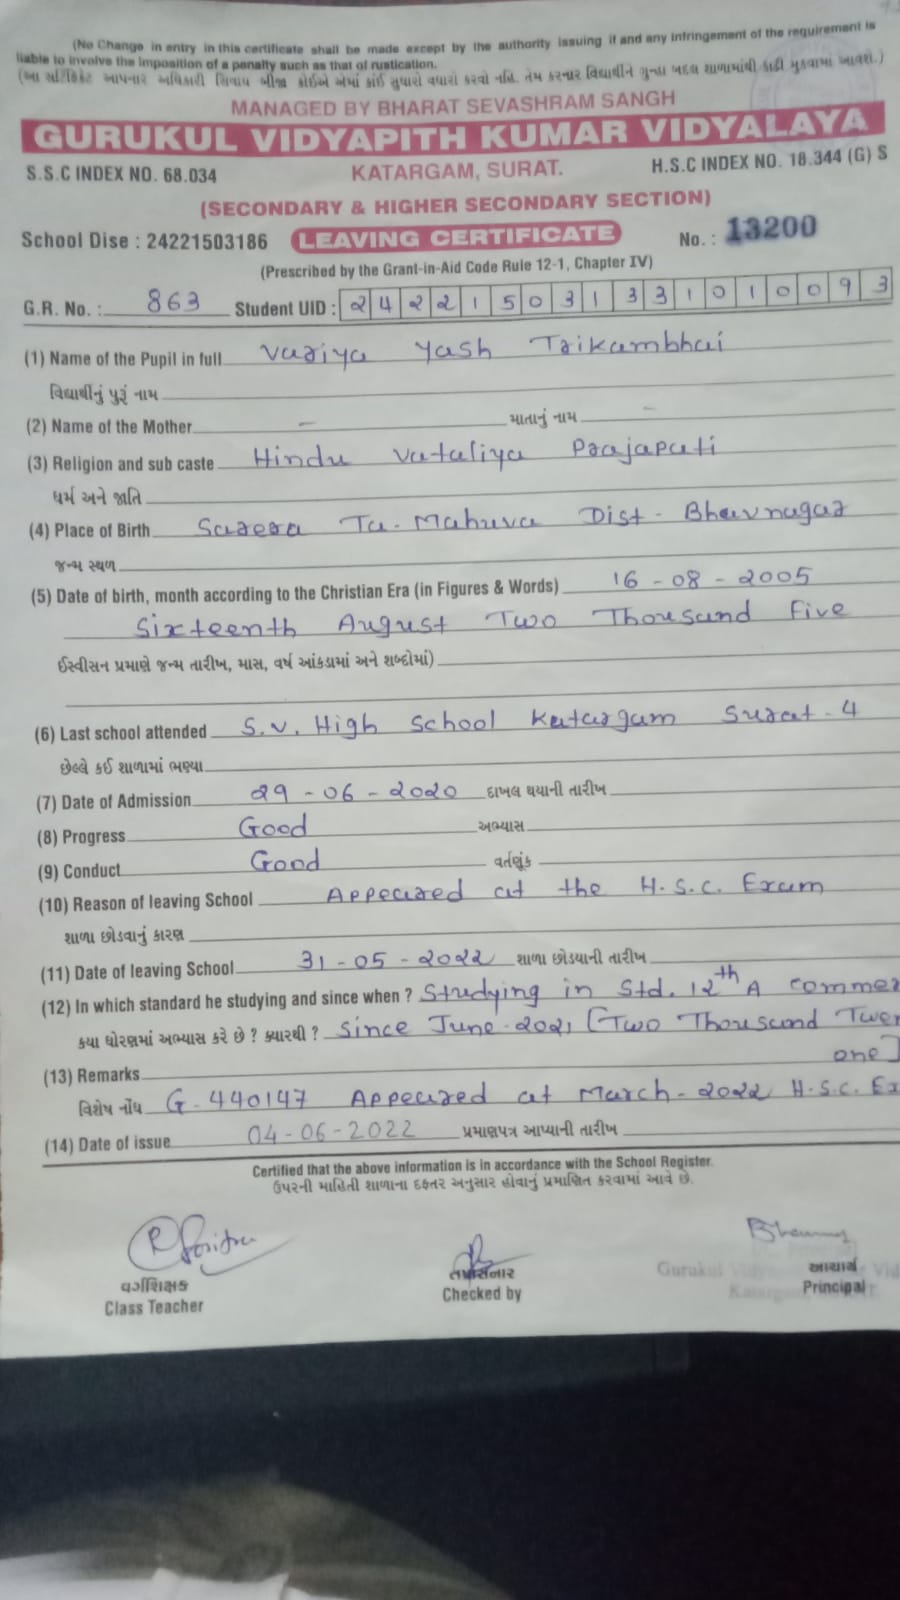 (No Change in entry in this certificate shall be made except by the authority issuing it and any infringement of the requirement is
liable to involve the imposition of a penalty such as that of rustication.
(આ સર્ટિફિકેટ આપનાર અધિકારી સિવાય બીજા કોઈએ એમાં કાંઈ સુધારો વધારો કરવો નહિ. તેમ કરનાર વિદ્યાર્થીને ગુન્હા બદલ શાળામાંથી કાઢી મુકવામાં આવશે.)
MANAGED BY BHARAT SEVASHRAM SANGH
GURUKUL VIDYAPITH KUMAR VIDYALAYA
S.S.C INDEX NO. 68.034 KATARGAM, SURAT. H.S.C INDEX NO. 18.344 (G) S
(SECONDARY & HIGHER SECONDARY SECTION)
School Dise : 24221503186 LEAVING CERTIFICATE No. : 13200
(Prescribed by the Grant-in-Aid Code Rule 12-1, Chapter IV)
G.R. No. : 863 Student UID : 242215031331010093
(1) Name of the Pupil in full Variya Yash Trikambhai
વિદ્યાર્થીનું પુરૂં નામ
(2) Name of the Mother - માતાનું નામ -
(3) Religion and sub caste Hindu Vataliya Prajapati
ધર્મ અને જાતિ
(4) Place of Birth Sarera Ta. Mahuva Dist - Bhavnagar
જન્મ સ્થળ
(5) Date of birth, month according to the Christian Era (in Figures & Words) 16 - 08 - 2005
Sixteenth August Two Thousand Five
ઈસ્વીસન પ્રમાણે જન્મ તારીખ, માસ, વર્ષ આંકડામાં અને શબ્દોમાં)
(6) Last school attended S.V. High School Katargam Surat - 4
છેલ્લે કઈ શાળામાં ભણ્યા
(7) Date of Admission 29 - 06 - 2020 દાખલ થયાની તારીખ
(8) Progress Good અભ્યાસ
(9) Conduct Good વર્તણૂંક
(10) Reason of leaving School Appeared at the H.S.C. Exam
શાળા છોડવાનું કારણ
(11) Date of leaving School 31 - 05 - 2022 શાળા છોડયાની તારીખ
(12) In which standard he studying and since when ? Studying in Std. 12th A Commer
કયા ધોરણમાં અભ્યાસ કરે છે ? ક્યારથી ? Since June-2021 [Two Thousand Twen
one]
(13) Remarks
વિશેષ નોંધ G-440147 Appeared at March-2022 H.S.C. Ex
(14) Date of issue 04-06-2022 પ્રમાણપત્ર આપ્યાની તારીખ
Certified that the above information is in accordance with the School Register.
ઉપરની માહિતી શાળાના દફતર અનુસાર હોવાનું પ્રમાણિત કરવામાં આવે છે.
વર્ગશિક્ષક તપાસનાર આચાર્ય
Class Teacher Checked by Principal